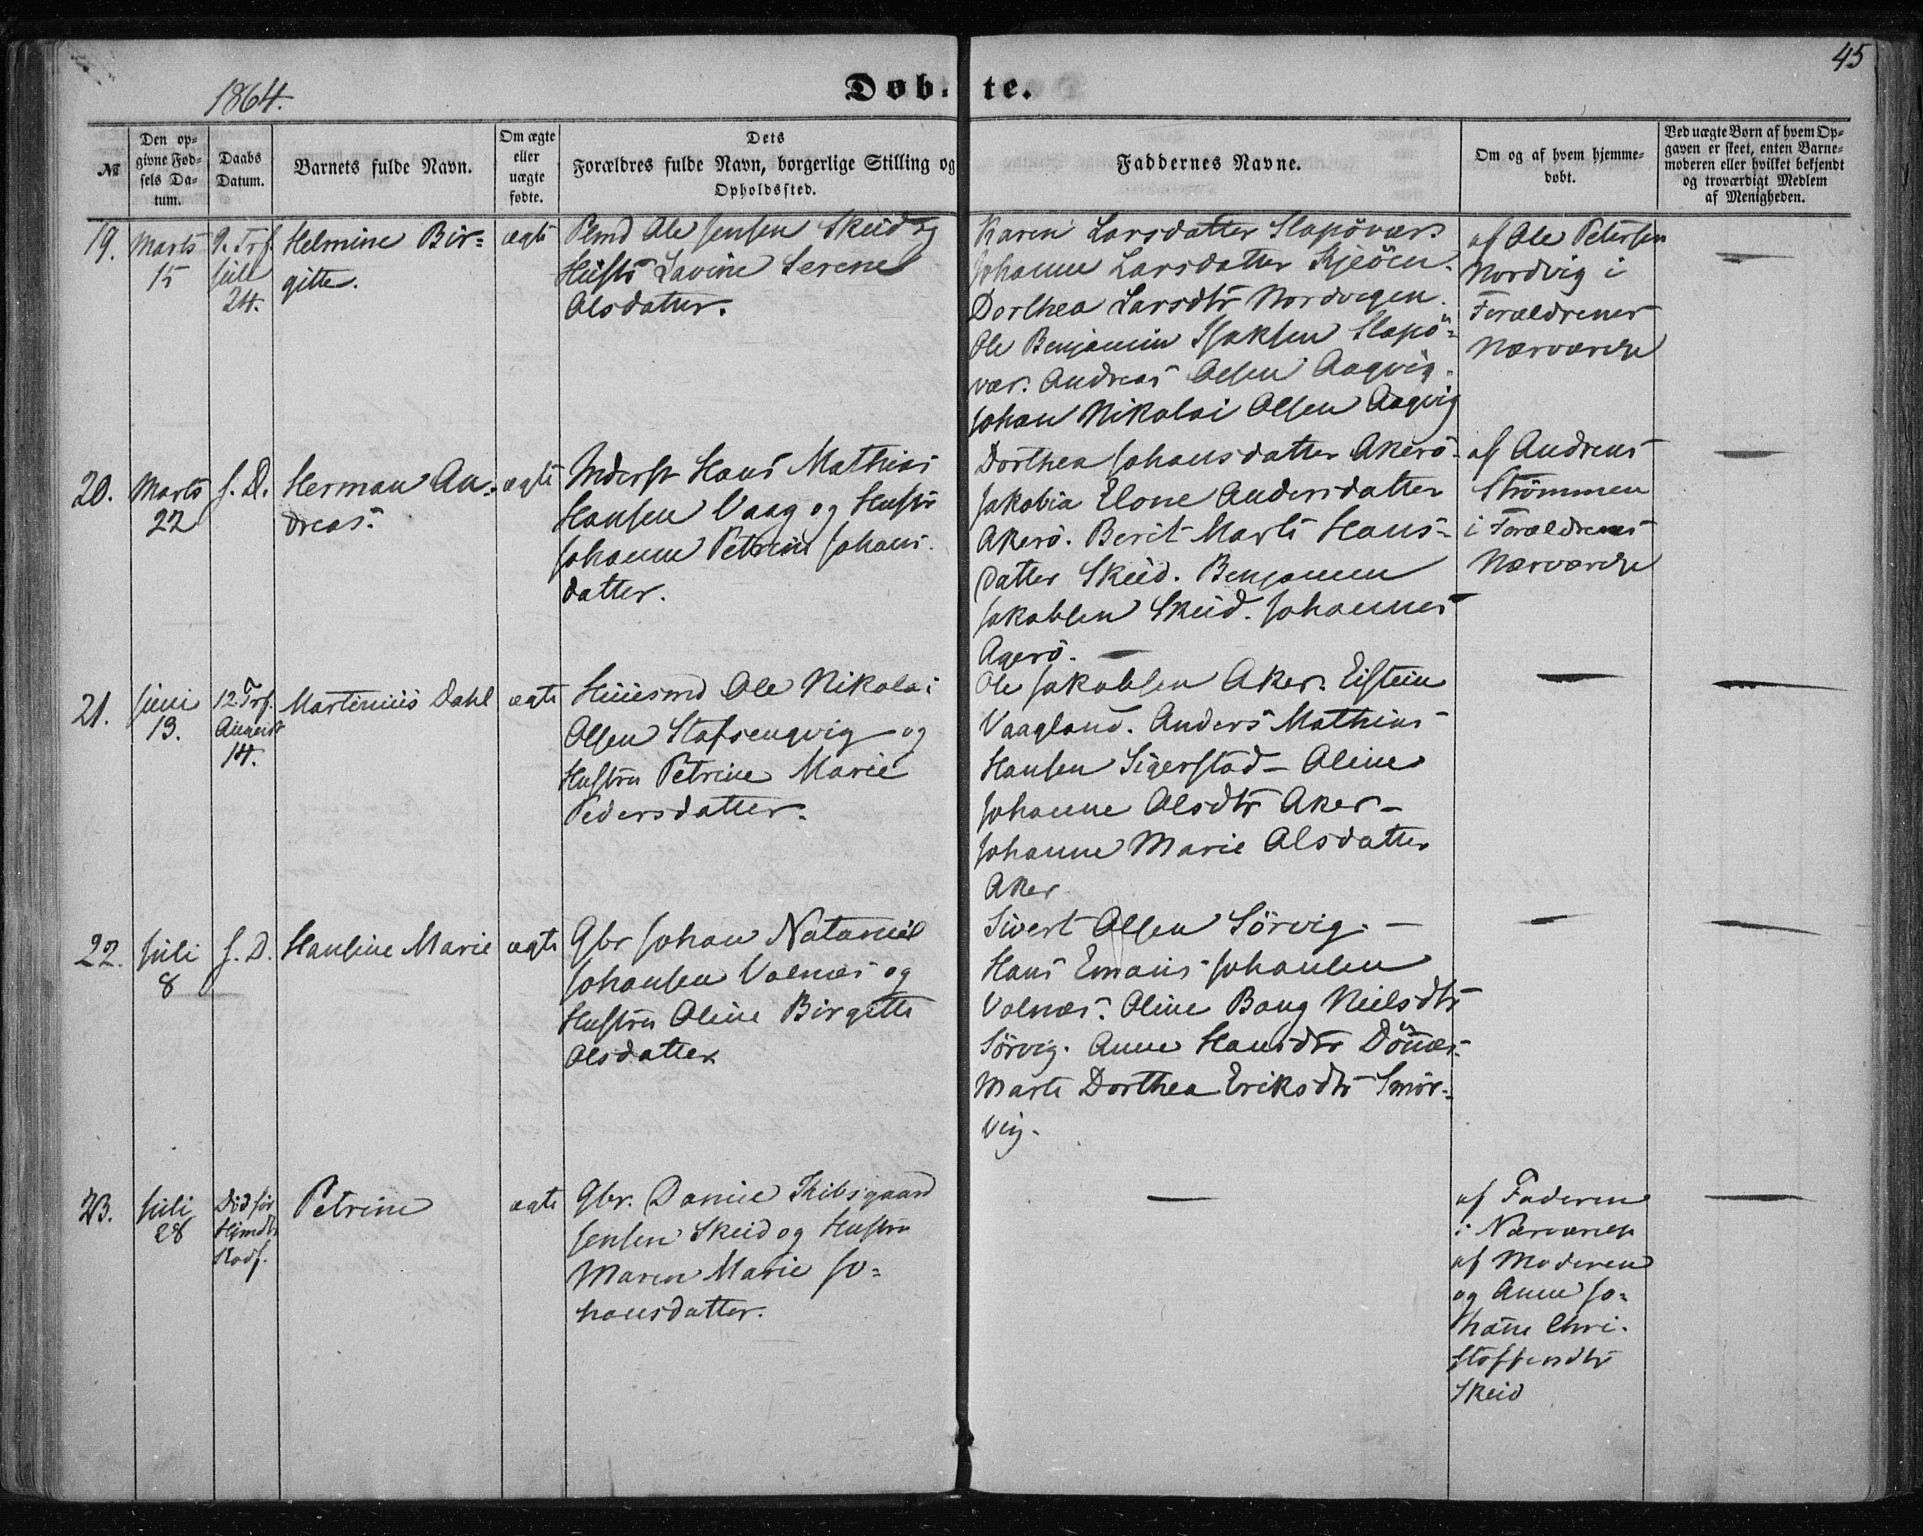 45
1864.
Døbte.
№
Den opgivne Fødsels Datum.
Daabs Datum.
Barnets fulde Navn.
Om ægte eller uægte fødte.
Dets Forældres fulde Navn, borgerlige Stilling og Opholdssted.
Faddernes Navne.
Om og af hvem hjemmedøbt.
Ved uægte Børn af hvem Opgaven er skeet, enten Barnemoderen eller hvilket bekjendt og troværdigt Medlem af Menigheden.
19.
Marts
15
9. Trf.
Juli
24.
Helmine Bir-
gitte.
ægte
Plmd Ole Jensen Skeid og
Hustr Lavine Serene
Olsdatter.
Karen Larsdatter Slapøvær.
Johanne Larsdatter Kjeøen.
Dorthea Larsdtr Nordvigen.
Ole Benjamin Isaksen Slapø-
vær. Andreas Olsen Aagvig.
Johan Nikolai Olsen Aagvig
af Ole Petersen
Nordvig i
Forældrenes
Nærværelse
20.
Marts
22
S. D.
Herman An-
dreas.
ægte
Inderst Hans Mathias
Hansen Vaag og Hustr
Johanne Petrine Johans-
datter.
Dorthea Johansdatter Akerö.
Jakobia Elone Andersdatter
Akerö. Berit Marte Hans-
datter Skeid. Benjamin
Jakobsen Skeid. Johannes
Agerö. —
af Andreas
Strömmen
i Forældrenes
Nærværelse
21.
Juni
13.
12 Trf.
August
14.
Martinius Dahl
ægte
Huusmd Ole Nikolai
Olsen Stafsengvig og
Hustru Petrine Marie
Pedersdatter.
Ole Jakobsen Aker. Eistein
Vaagland. Anders Mathias
Hansen Sigerstad – Oline
Johanne Olsdtr Aker –
Johanne Marie Olsdatter
Aker
22.
Juli
8
S. D.
Hansine Marie
ægte
Gbr Johan Natanael
Johansen Valnæs og
Hustru Oline Birgitte
Olsdatter
Sivert Olsen Sörvig. –
Hans Emaus Johansen
Valnæs. Oline Bang Nielsdtr
Sörvig. Anne Hansdtr Dönæs.
Marte Dorthea Eriksdtr Smör-
vig.
23.
Juli
28
Död för
Hjmdb
Stadf.
Petrine
ægte
Gbr. Daniel Skibsgaard
Jensen Skeid og Hustru
Maren Marie Jo-
hansdatter.
af Faderen
i Nærværelse
af Moderen
og Anne Jo-
hanne Chri-
stoffersdtr
Skeid